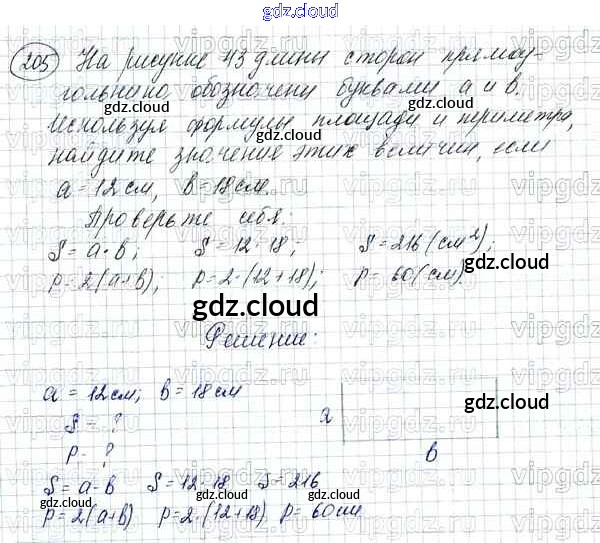 gdz.cloud
205 На рисунке 43 длины сторон прямоу-
гольника обозначены буквами a и b.
gdz.cloud gdz.cloud
Используя формулы площади и периметра,
найдите значение этих величин, если
a = 12 см, b = 18 см.
gdz.cloud gdz.cloud
Проверьте себя:
S = a · b; S = 12 · 18; S = 216 (см²);
P = 2(a+b); P = 2 · (12 + 18); P = 60 (см).
gdz.cloud
Решение:
gdz.cloud
a = 12 см; b = 18 см
gdz.cloud
S = ?
a
P - ?
b
S = a · b S = 12 · 18 S = 216
P = 2(a+b) P = 2 · (12+18) P = 60 см
gdz.cloud gdz.cloud